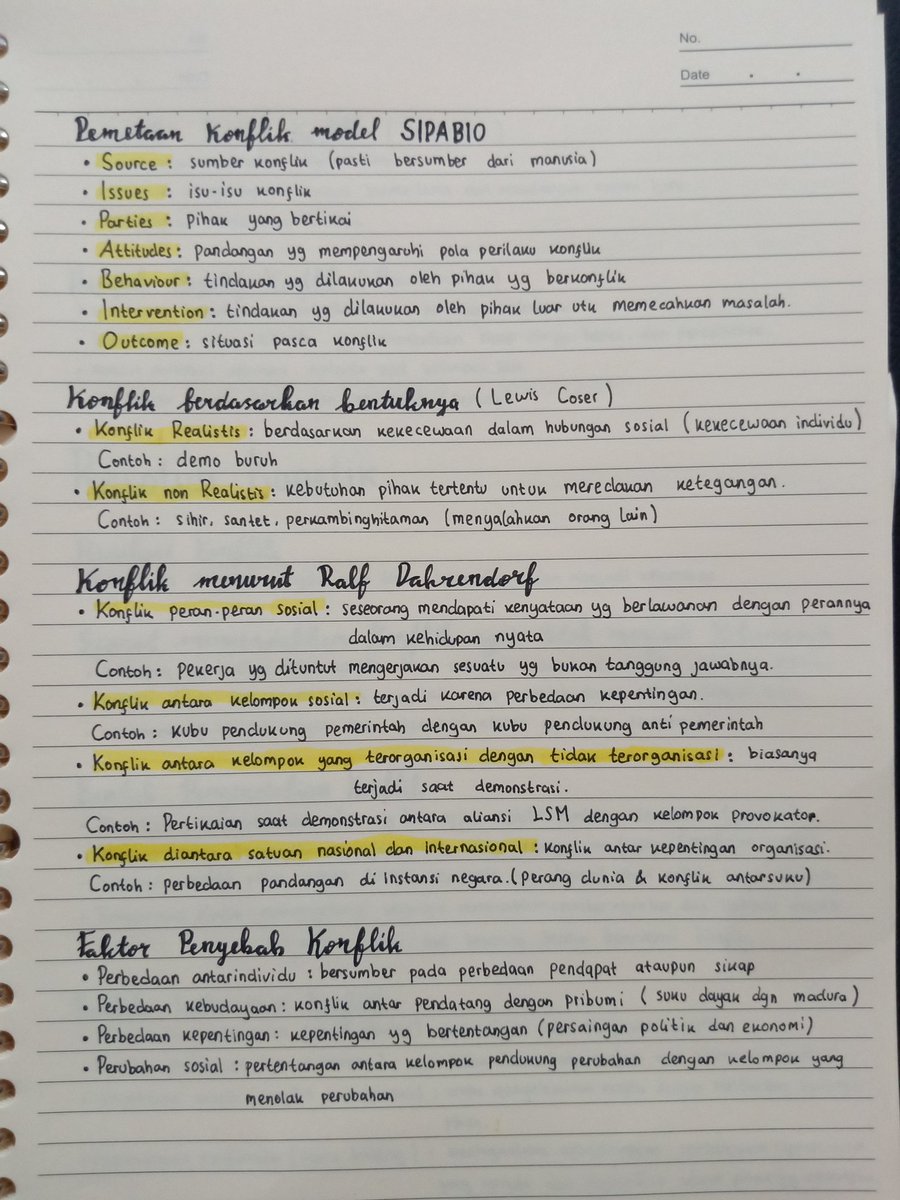 No.
Date . .
Pemetaan Konflik model SIPABIO
• Source : sumber konflik (pasti bersumber dari manusia)
• Issues : isu-isu konflik
• Parties : pihak yang bertikai
• Attitudes : pandangan yg mempengaruhi pola perilaku konflik
• Behaviour : tindakan yg dilakukan oleh pihak yg berkonflik
• Intervention : tindakan yg dilakukan oleh pihak luar utk memecahkan masalah.
• Outcome : situasi pasca konflik
Konflik berdasarkan bentuknya (Lewis Coser)
• Konflik Realistis : berdasarkan kekecewaan dalam hubungan sosial (kekecewaan individu)
Contoh : demo buruh
• Konflik non Realistis : kebutuhan pihak tertentu untuk meredakan ketegangan.
Contoh : sihir, santet, perkambinghitaman (menyalahkan orang lain)
Konflik menurut Ralf Dahrendorf
• Konflik peran-peran sosial : seseorang mendapati kenyataan yg berlawanan dengan perannya
dalam kehidupan nyata
Contoh : pekerja yg dituntut mengerjakan sesuatu yg bukan tanggung jawabnya.
• Konflik antara kelompok sosial : terjadi karena perbedaan kepentingan.
Contoh : kubu pendukung pemerintah dengan kubu pendukung anti pemerintah
• Konflik antara kelompok yang terorganisasi dengan tidak terorganisasi : biasanya
terjadi saat demonstrasi.
Contoh : Pertikaian saat demonstrasi antara aliansi LSM dengan kelompok provokator.
• Konflik diantara satuan nasional dan Internasional : konflik antar kepentingan organisasi.
Contoh : perbedaan pandangan di instansi negara. (perang dunia & konflik antarsuku)
Faktor Penyebab Konflik
• Perbedaan antarindividu : bersumber pada perbedaan pendapat ataupun sikap
• Perbedaan kebudayaan : konflik antar pendatang dengan pribumi (suku dayak dgn madura)
• Perbedaan kepentingan : kepentingan yg bertentangan (persaingan politik dan ekonomi)
• Perubahan sosial : pertentangan antara kelompok pendukung perubahan dengan kelompok yang
menolak perubahan